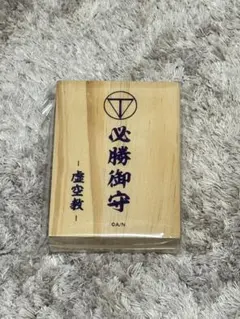 必勝御守
-虚空教-
©A/N